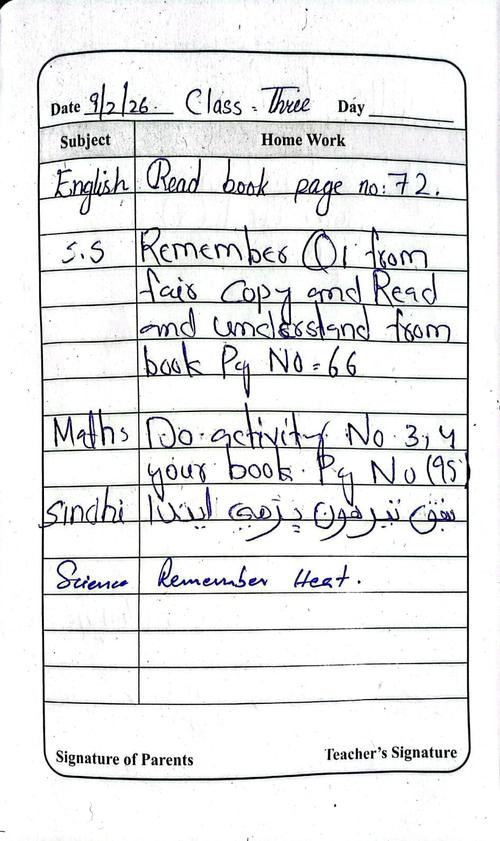 Date 9/2/26. Class - Three Day
Subject Home Work
English Read book page no: 72.
S.S Remember Q1 from
fair Copy and Read
and understand from
book Pg NO = 66
Maths Do activity No 3, 4
your book. Pg No (95)
Sindhi سبق تيرهون پڙهي ايندا
Science Remember Heat.
Signature of Parents Teacher's Signature